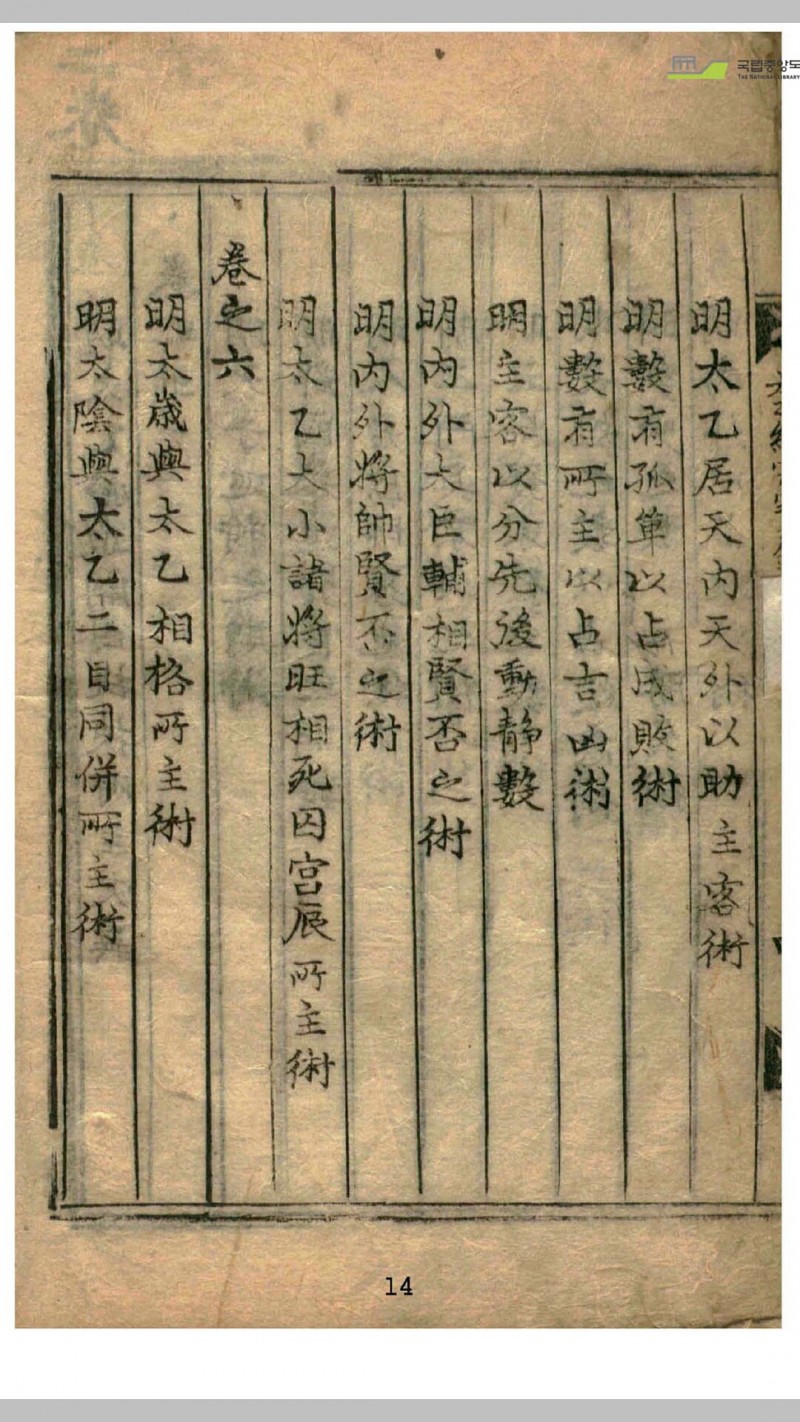 明太乙居天内天外以助主客術
明數有孤單以占成敗術
明數有所主以占吉凶術
明主客以分先後動静數
明内外大臣輔相賢否之術
明内外将帥賢否之術
明太乙大小諸将旺相死囚宫辰所主術
卷之六
明太歳與太乙相格所主術
明太陰與太乙二目同併所主術
14
국립중앙도
THE NATIONAL LIBRARY